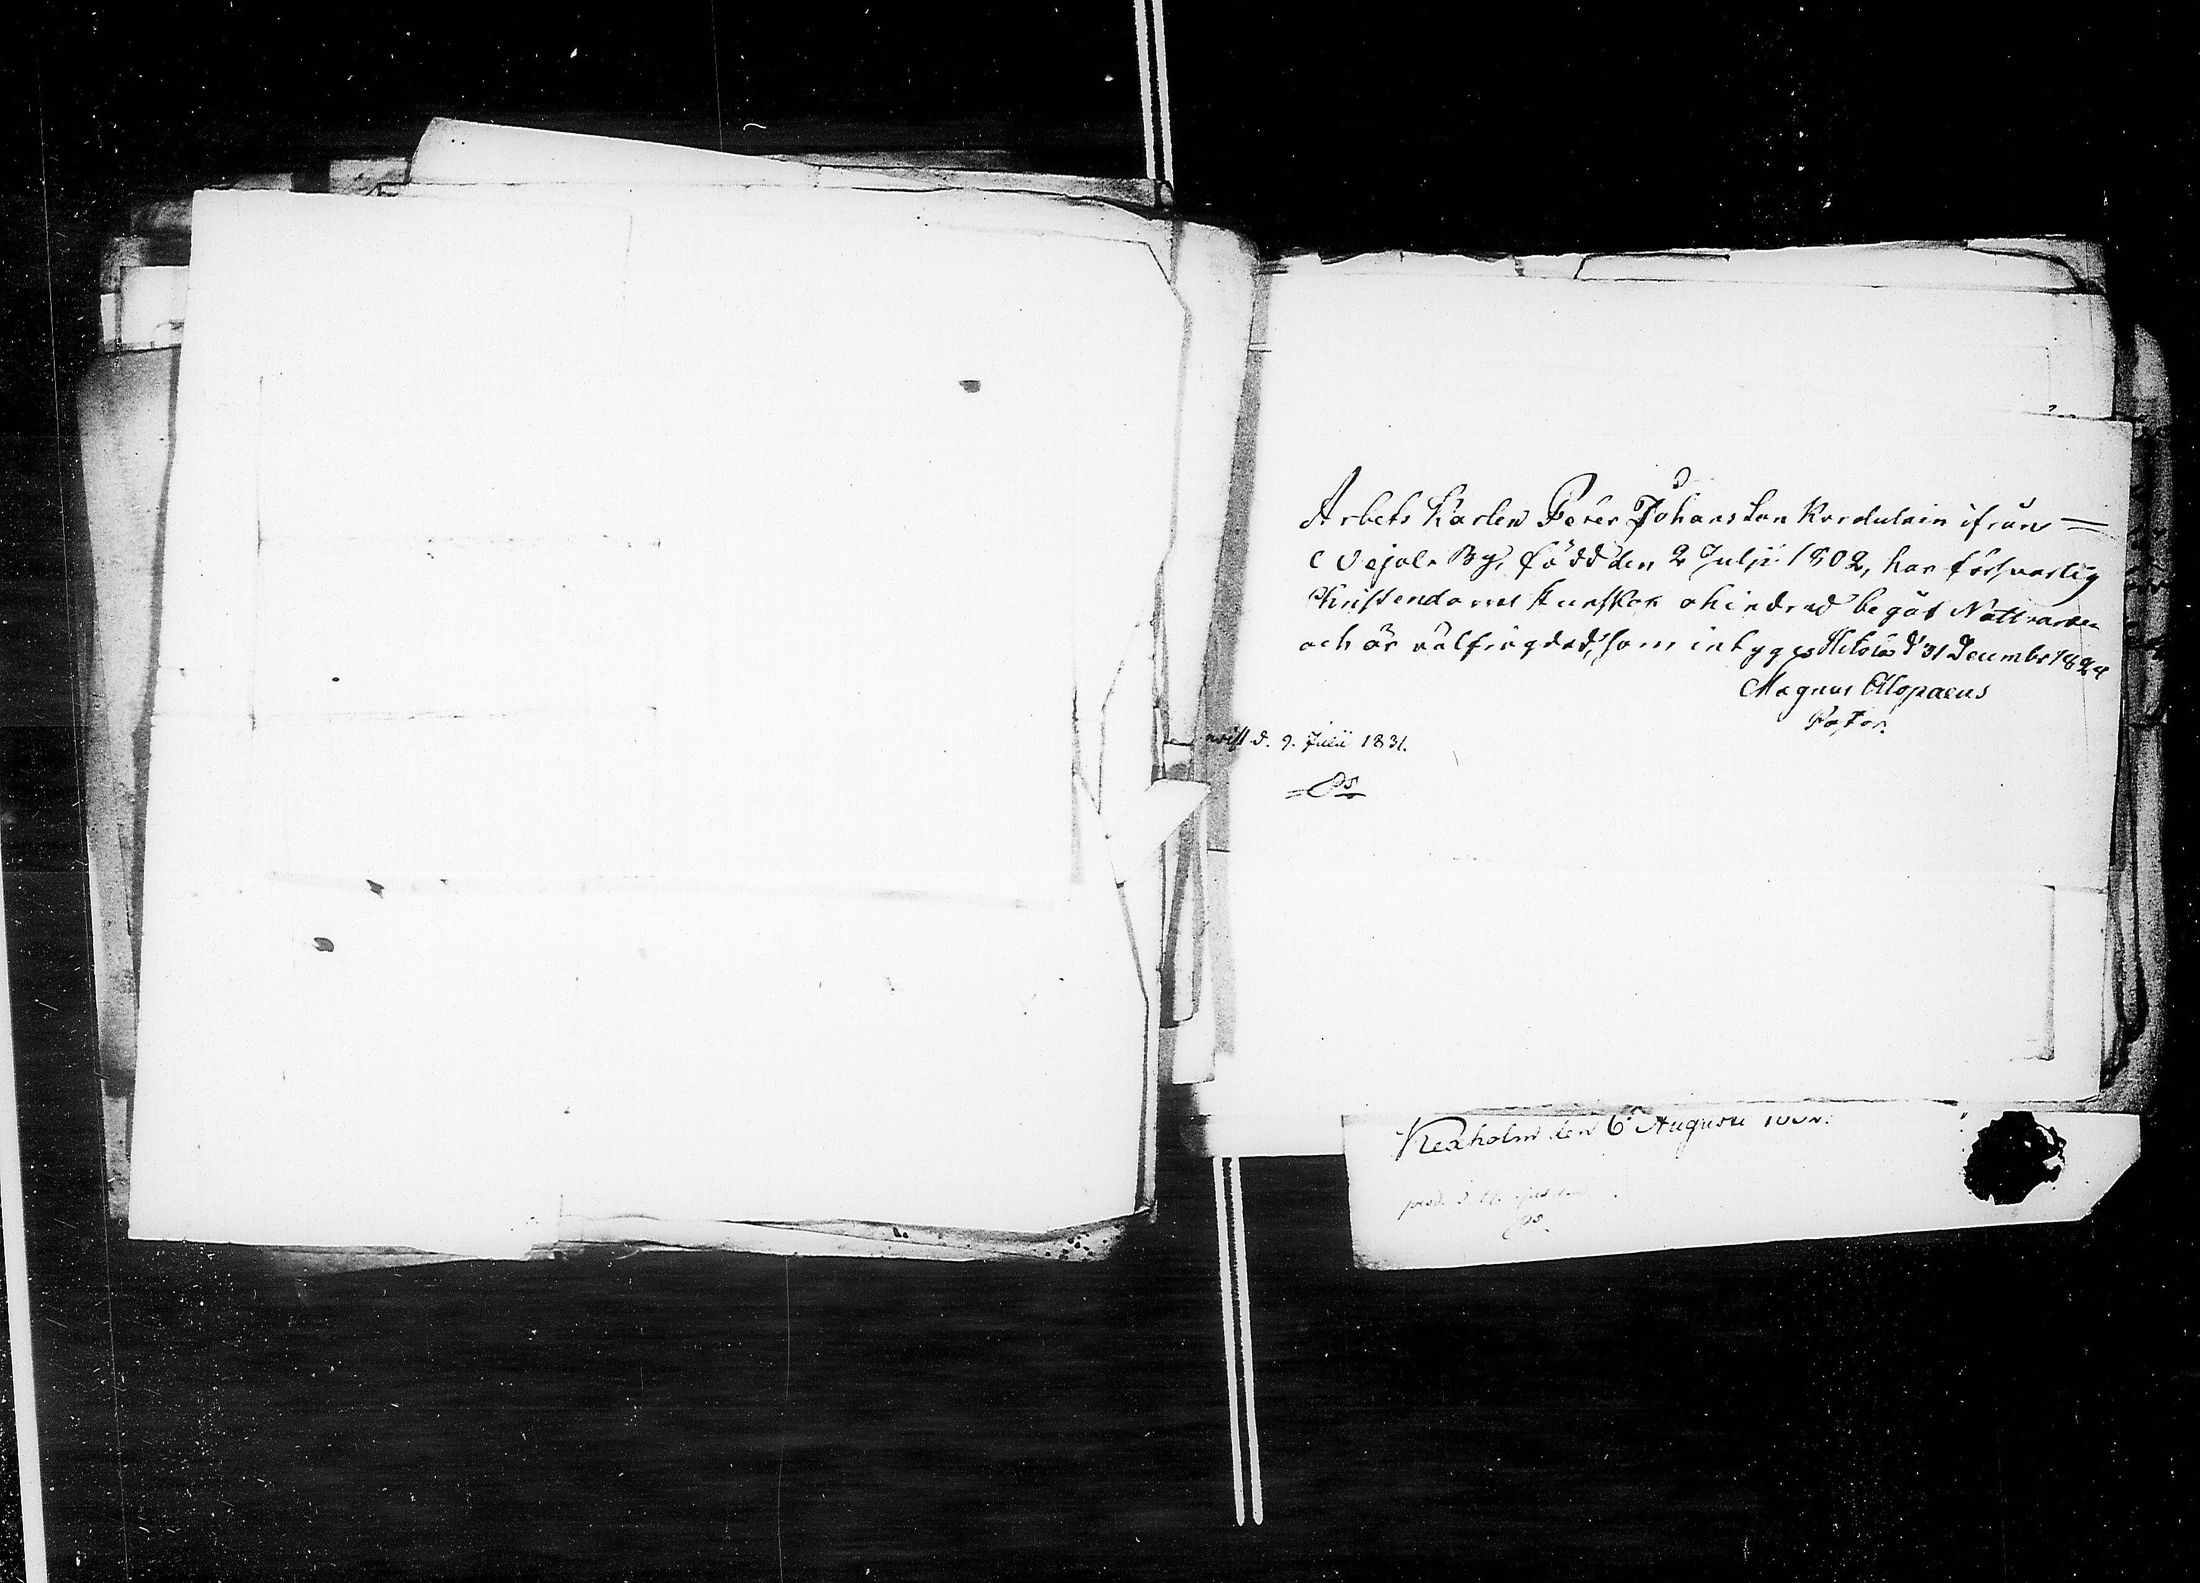 Arbets Karlen Peter Johansson Kordulain ifrån
Wejola By, född den 2 Julii 1802, har försvarlig
Christendoms kunskap ohindrad begåt Nattvarden
och är välfrägdad, som intygas Hitola d 31 December 182
Magnus Alopaeus
Pastor.
d. 9. Julii 1831.
Ps
Kexholm den 6 Augusti
prod. d.
Ps.